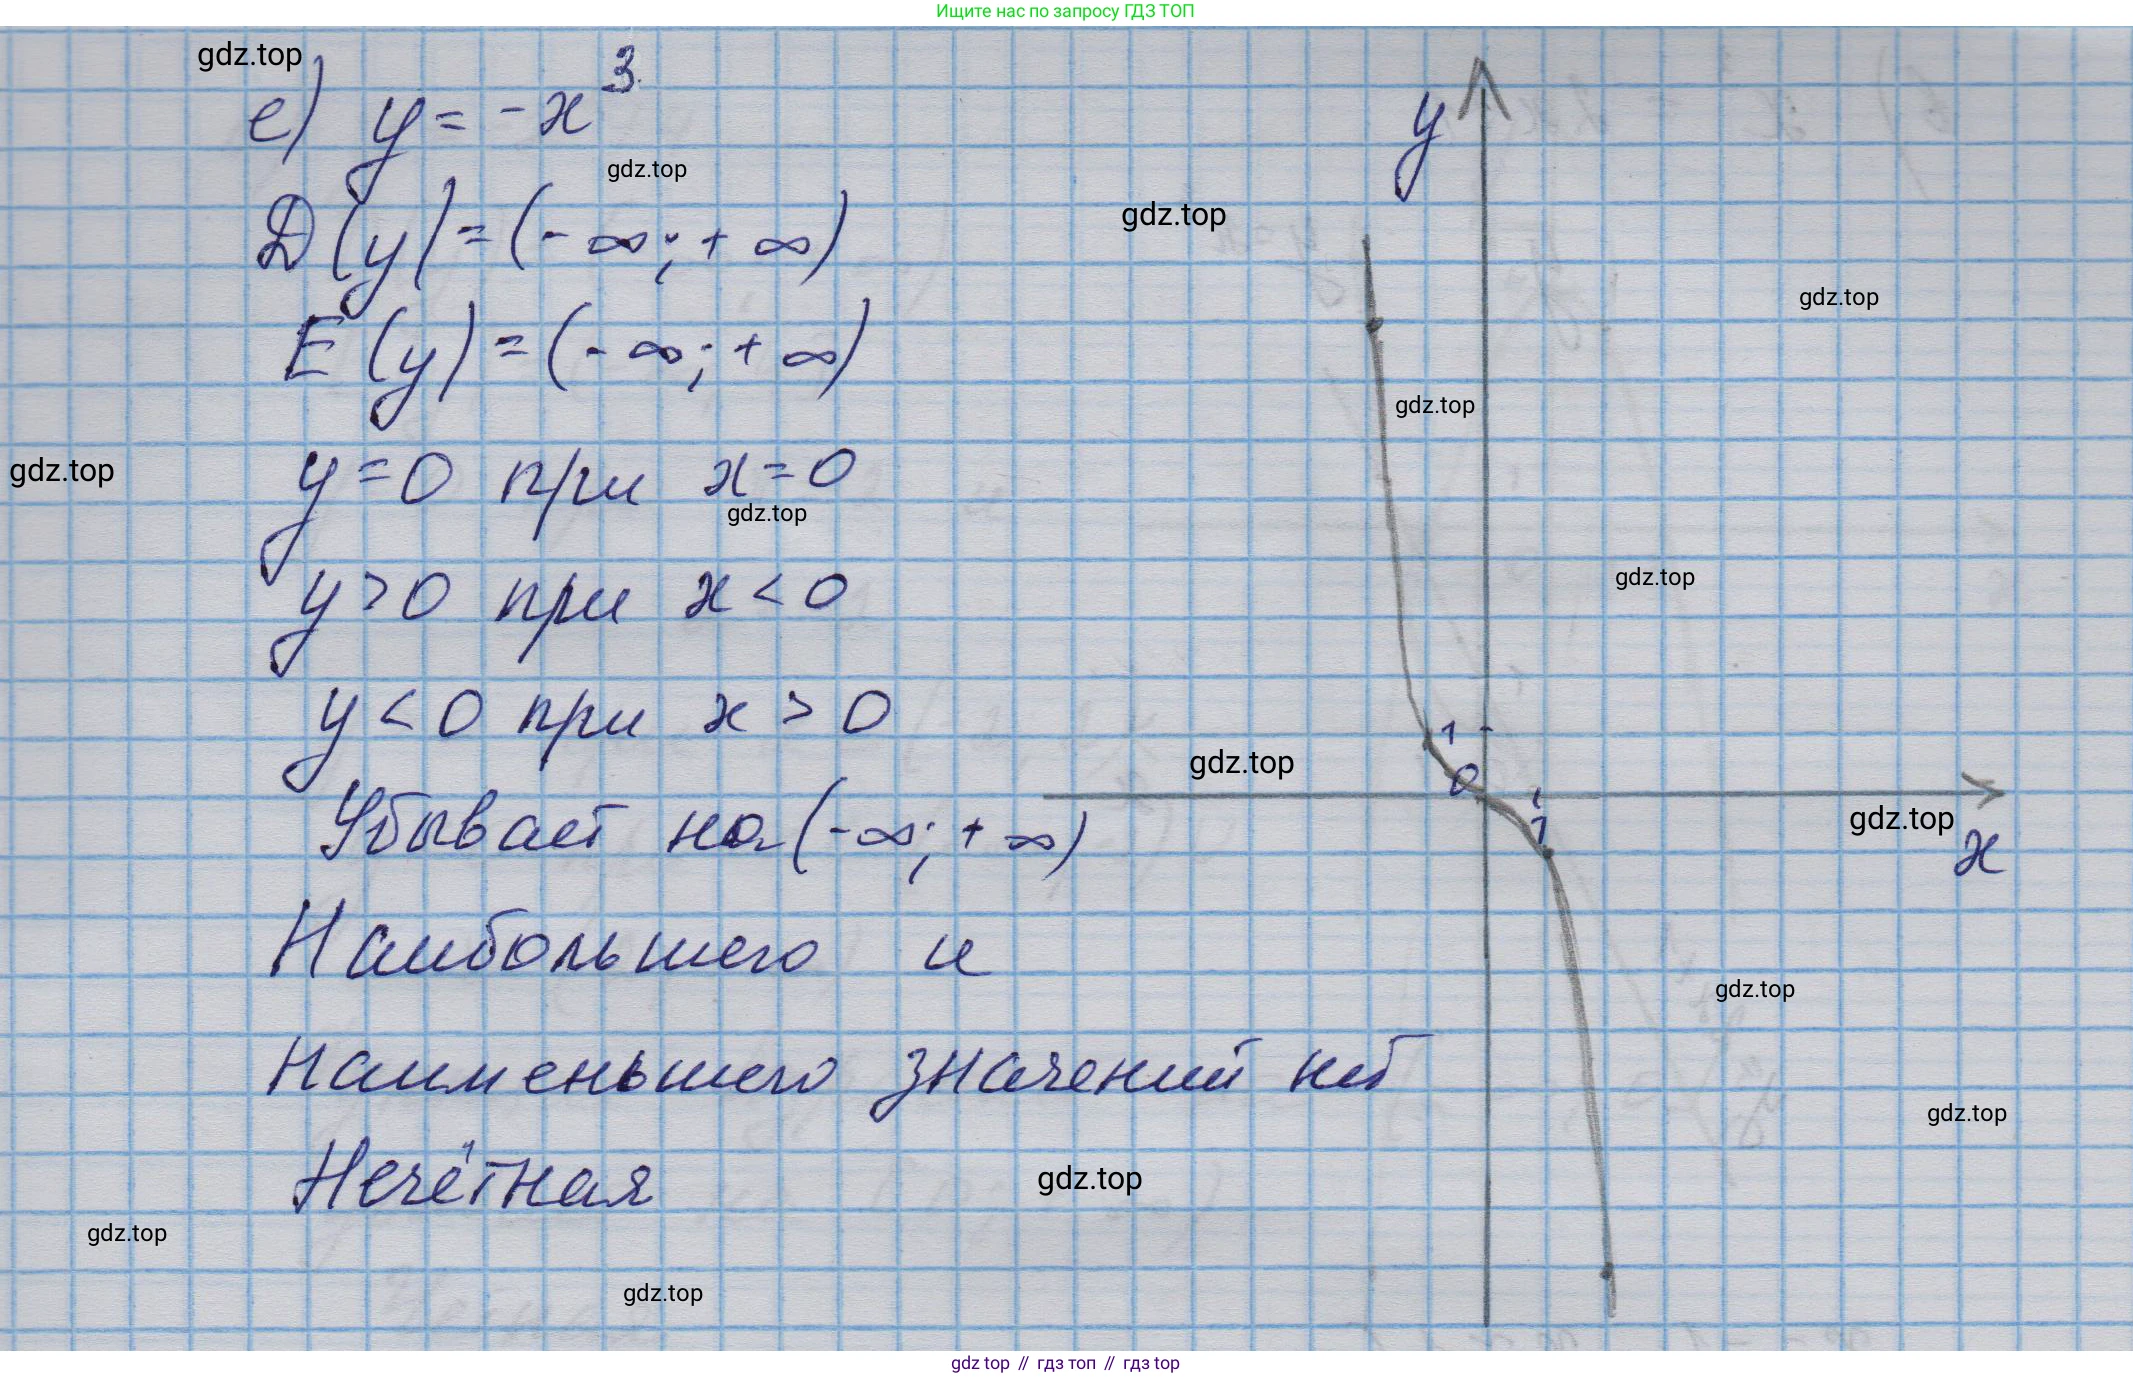 Ищите нас по запросу ГДЗ ТОП
gdz.top
е) y = -x³
gdz.top
D(y) = (-∞; +∞)
E(y) = (-∞; +∞)
gdz.top
y = 0 при x = 0
gdz.top
y > 0 при x < 0
y < 0 при x > 0
Убывает на (-∞; +∞)
Наибольшего и
наименьшего значений нет
Нечётная
gdz.top
gdz.top
y
gdz.top
gdz.top
gdz.top
gdz.top
1
0
gdz.top
1
gdz.top
x
gdz.top
gdz.top
gdz.top
gdz.top // гдз топ // гдз top